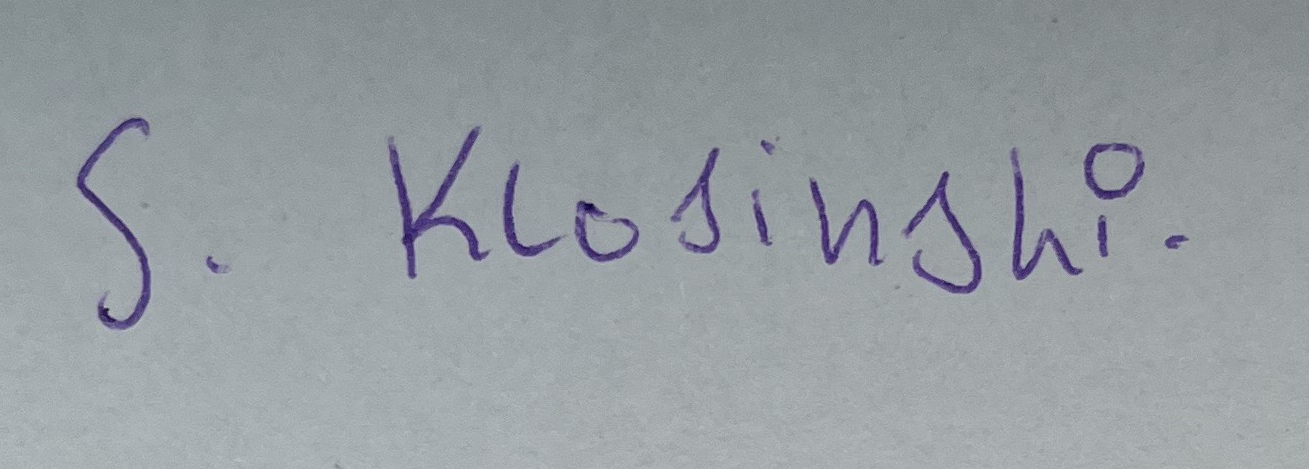 S. Klosinshi.